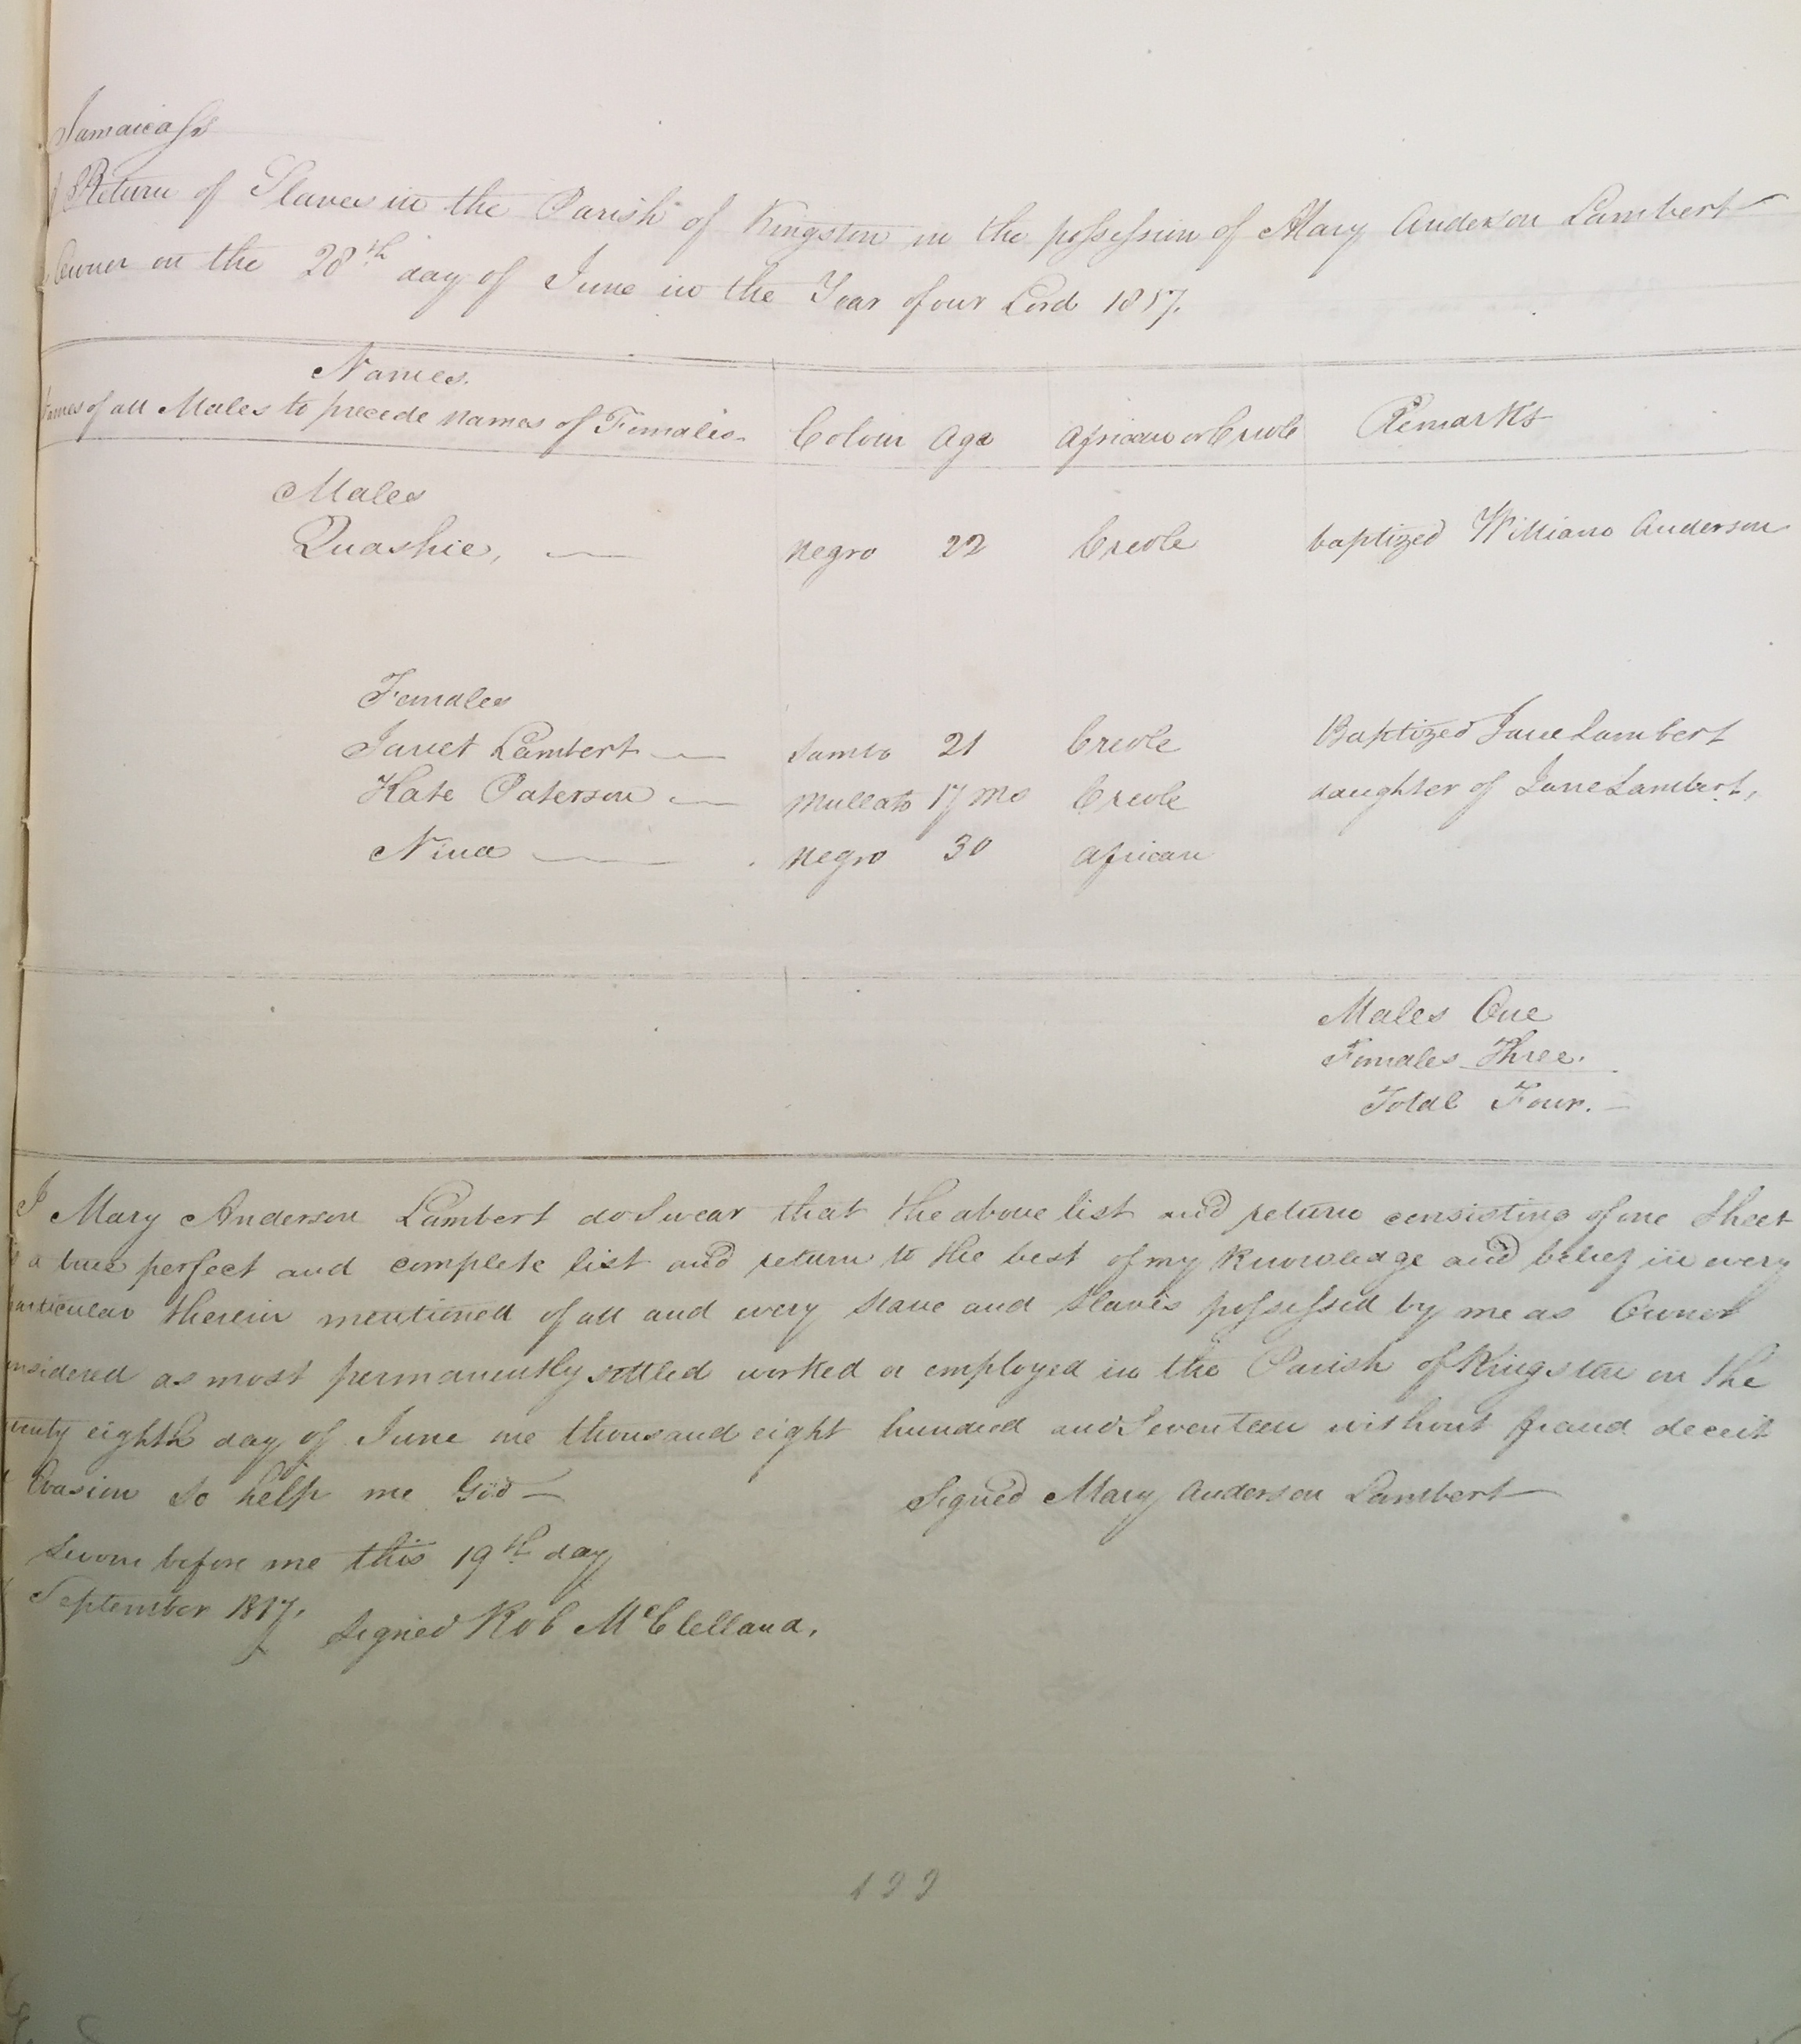 Jamaica Ss
A Return of Slaves in the Parish of Kingston in the possession of Mary Anderson Lambert
Owner on the 28th day of June in the Year of our Lord 1817.
Names.
Names of all Males to precede names of Females.
Colour Age African or Creole Remarks
Males
Quashie, negro 22 Creole baptized William Anderson
Females
Janet Lambert sambo 21 Creole Baptized Jane Lambert
Kate Paterson Mullato 17 Mo Creole daughter of Jane Lambert,
Nina negro 30 african
Males One
Females Three.
Total Four.
I Mary Anderson Lambert do Swear that the above list and return consisting of one Sheet
a true perfect and complete list and return to the best of my Knowledge and belief in every
articular therein mentioned of all and every slave and slaves possessed by me as Owner
nsidered as most permanently settled worked or employed in the Parish of Kingston on the
enty eighth day of June one thousand eight hundred and Seventeen without fraud deceit
Evasion So help me God
Signed Mary Anderson Lambert
Sworn before me this 19th day
September 1817.
Signed Rob McClelland.
199